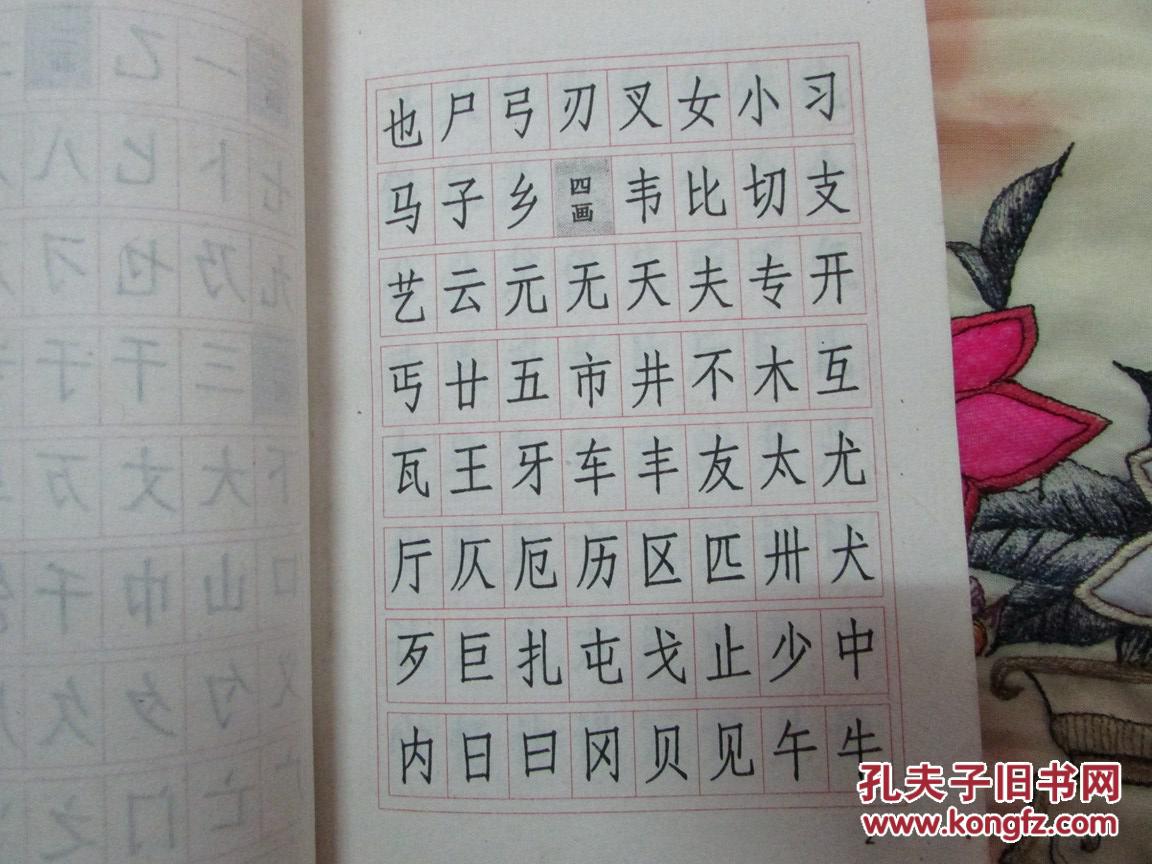 也尸弓刃叉女小习
马子乡四画韦比切支
艺云元无天夫专开
丐廿五市井不木互
瓦王牙车丰友太尤
厅仄厄历区匹卅犬
歹巨扎屯戈止少中
内日曰冈贝见午牛
孔夫子旧书网
www.kongfz.com